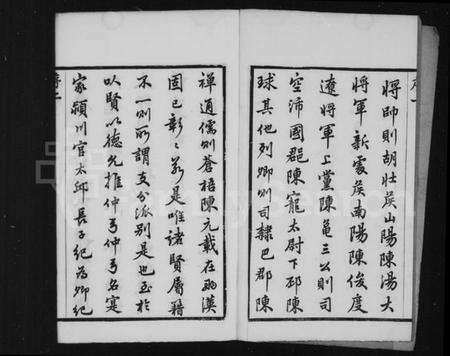 序二
將帥則胡壯矦山陽陳湯大
將軍新處矦南陽陳俊度
遼將軍上黨陳龜三公則司
空沛國陳寵太尉下邳陳
球其他列卿則司隸巴郡陳
禪通儒則蒼梧陳元載在兩漢
固已彰彰若是唯諸賢屬籍
不一則所謂支分派別是也至於
以賢以德允推仲弓仲弓名寔
家潁川官太邱長子紀爲卿紀
序二